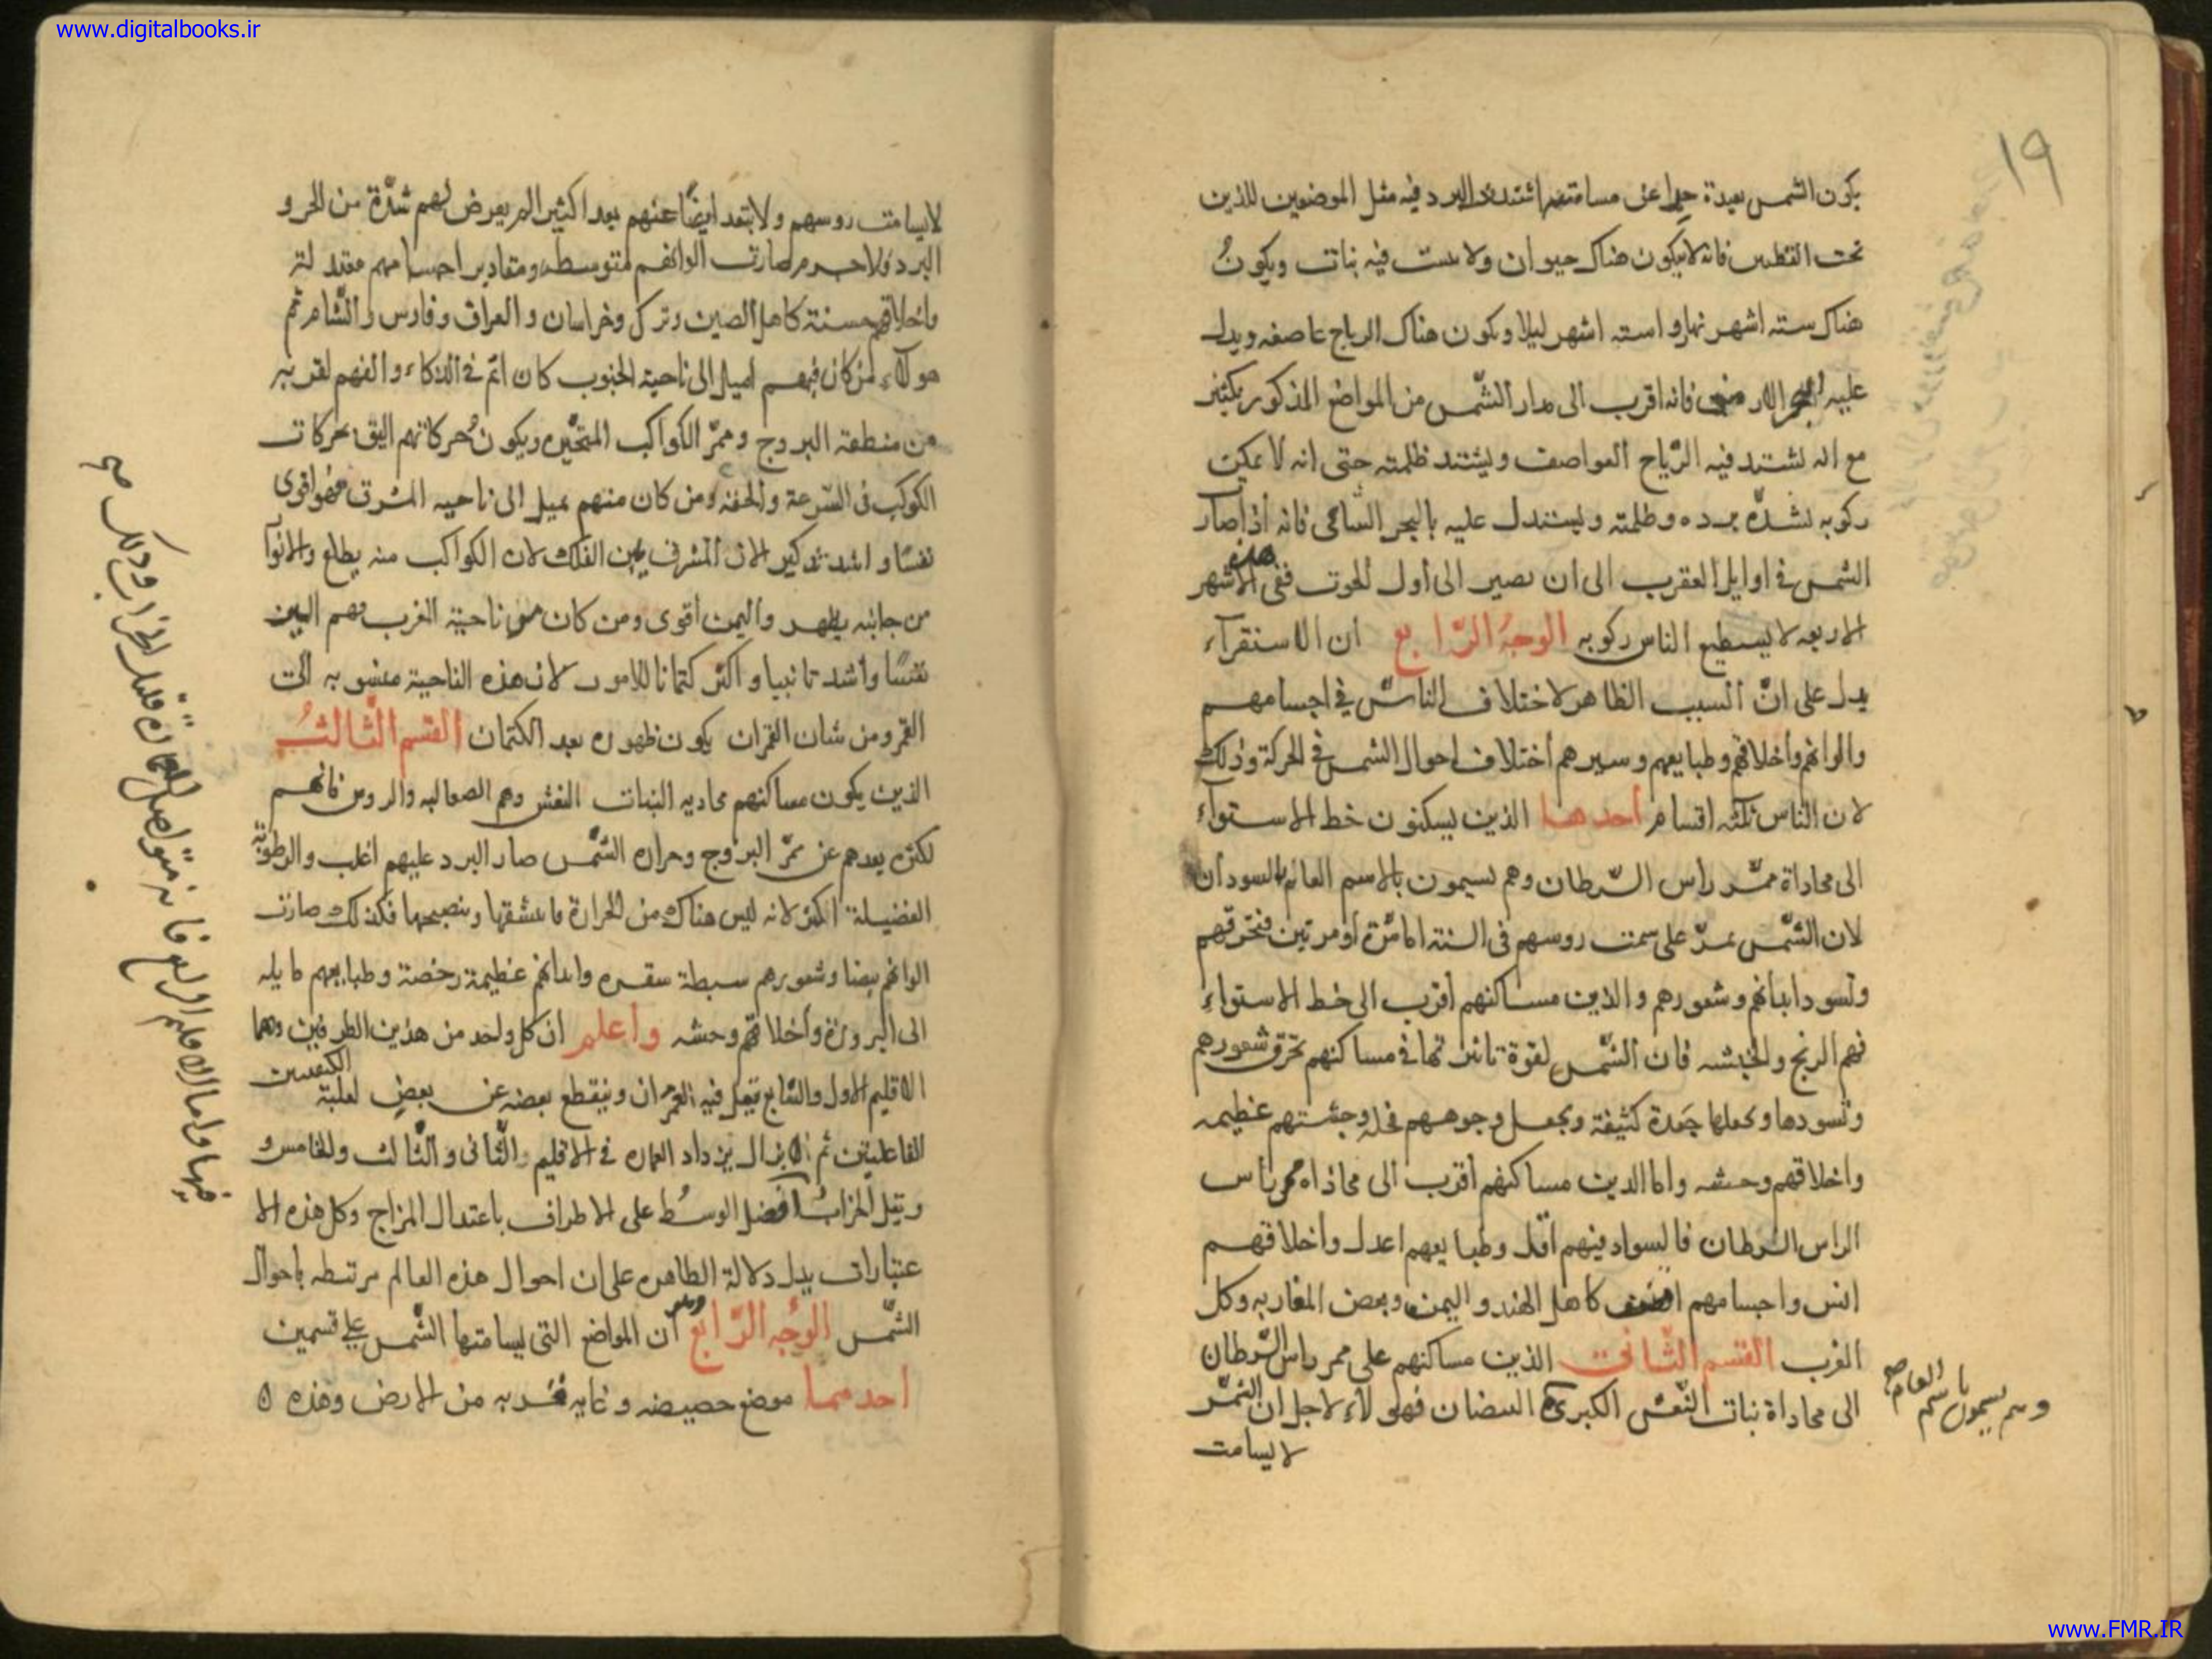 www.digitalbooks.ir
١٩
يكون الشمس بعيدة جدا عن مسامتتها اشتد البرد فيه مثل الموضعين للذين
تحت القطبين فانه لا يكون هناك حيوان ولا ينبت فيه نبات ويكون
هناك ستة اشهر نهارا وستة اشهر ليلا ويكون هناك الرياح عاصفه ويدل
عليه فانه اقرب الى مدار الشمس من المواضع المذكور بكثير
مع انه تشتد فيه الرياح العواصف ويشتد ظلمته حتى انه لا يمكن
ركوبه لشدة برده وظلمته ويستدل عليه بالبحر الشامى فانه اذا صار
الشمس فى اوايل العقرب الى ان يصير الى اول الحوت ففى هذه الاشهر
الاربعه لا يسطيع الناس ركوبه الوجه الرابع ان الاستقرآء
يدل على ان السبب الظاهر لاختلاف الناس فى اجسامهم
والوانهم واخلاقهم وطبايعهم وسيرهم اختلاف احوال الشمس فى الحركة وذلك
لان الناس ثلثه اقسام احدها الذين يسكنون خط الاستوآء
الى محاذاة ممر راس السرطان وهم يسيمون بالاسم العام بالسودان
لان الشمس تمر على سمت روسهم فى السنة اما مرة او مرتين فتحرقهم
وتسود ابدانهم وشعورهم والذين مساكنهم اقرب الى خط الاستواء
فهم الزنج والحبشه فان الشمس لقوة تاثيرها فى مساكنهم تحرق شعورهم
وتسودها وتجعلها جعدة كثيفة وتجعل وجوههم قحلة وجثتهم عظيمه
واخلاقهم وحشه واما الذين مساكنهم اقرب الى محاذاه ممر راس
الراس السرطان فالسواد فيهم اقل وطبايعهم اعدل واخلاقهم
انس واجسامهم كاهل الهند واليمن وبعض المغاربه وكل
العرب القسم الثانى الذين مساكنهم على ممر راس السرطان
الى محاذاة بنات النعش الكبرى البيضان فهولآء لاجل ان الشمس
لا يسامت
وهم يسيمون باسم العام صح
لا يسامت روسهم ولا تبعد ايضا عنهم بعدا كثيرا لم يعرض لهم شدة من الحر و
البرد فلا جرم صارت الوانهم متوسطه ومقادير اجسامهم معتدلة
واخلاقهم حسنة كاهل الصين وترك وخراسان والعراق وفارس والشام ثم
هولآء من كان فيهم اميل الى ناحية الجنوب كان اتم فى الذكاء والفهم لقربه
من منطقة البروج وممر الكواكب المتحيره ويكون حركاتهم اليق بحركات
الكوكب فى السرعة والخفه ومن كان منهم يميل الى ناحيه المشرق فهو اقوى
نفسا واشد تذكير الان المشرق يمين الفلك لان الكواكب منه يطلع والانوآ
من جانبه يظهر واليمين اقوى ومن كان من ناحية الغرب فهم الين
نفسا واشد تانيا واكثر كتمانا للامور لان هذه الناحية منسوبه الى
القمر ومن شان القمران يكون ظهوره بعد الكتمان القسم الثالث
الذين يكون مساكنهم محاديه البنات النعش وهم الصعالبه والروس فانهم
لكثره بعدهم عن ممر البروج وحراره الشمس صار البرد عليهم اغلب والرطوبة
الفضيلة اكثر لانه ليس هناك من الحرارة ما ينشفها وينضجها فكذلك صارت
الوانهم بيضا وشعورهم سبطة شقره وابدانهم عظيمة رخصة وطبايعهم مايله
الى البرودة واخلاقهم وحشه واعلم ان كل واحد من هذين الطرفين وهما
الاقليم الاول والسابع يقل فيه العمران وينقطع بعضه عن بعض لغلبة الكيفيتين
الفاعليتين ثم لا يزال يزداد العماره فى الاقليم والثانى والثالث والخامس و
ويقل الخراب افضل الوسط على الاطراف باعتدال المزاج وكل هذه الا
عتبارات يدل دلالة الظاهره على ان احوال هذه العالم مرتبطه باحوال
الشمس الوجه الرابع ان المواضع التى يسامتها الشمس على قسمين
احدهما موضع حضيضه وغايه قربه من الارض وهذه ٥
فيها واما الاقليم الرابع فانه متواصل العمارة قليل الخراب وذلك صح
www.FMR.IR